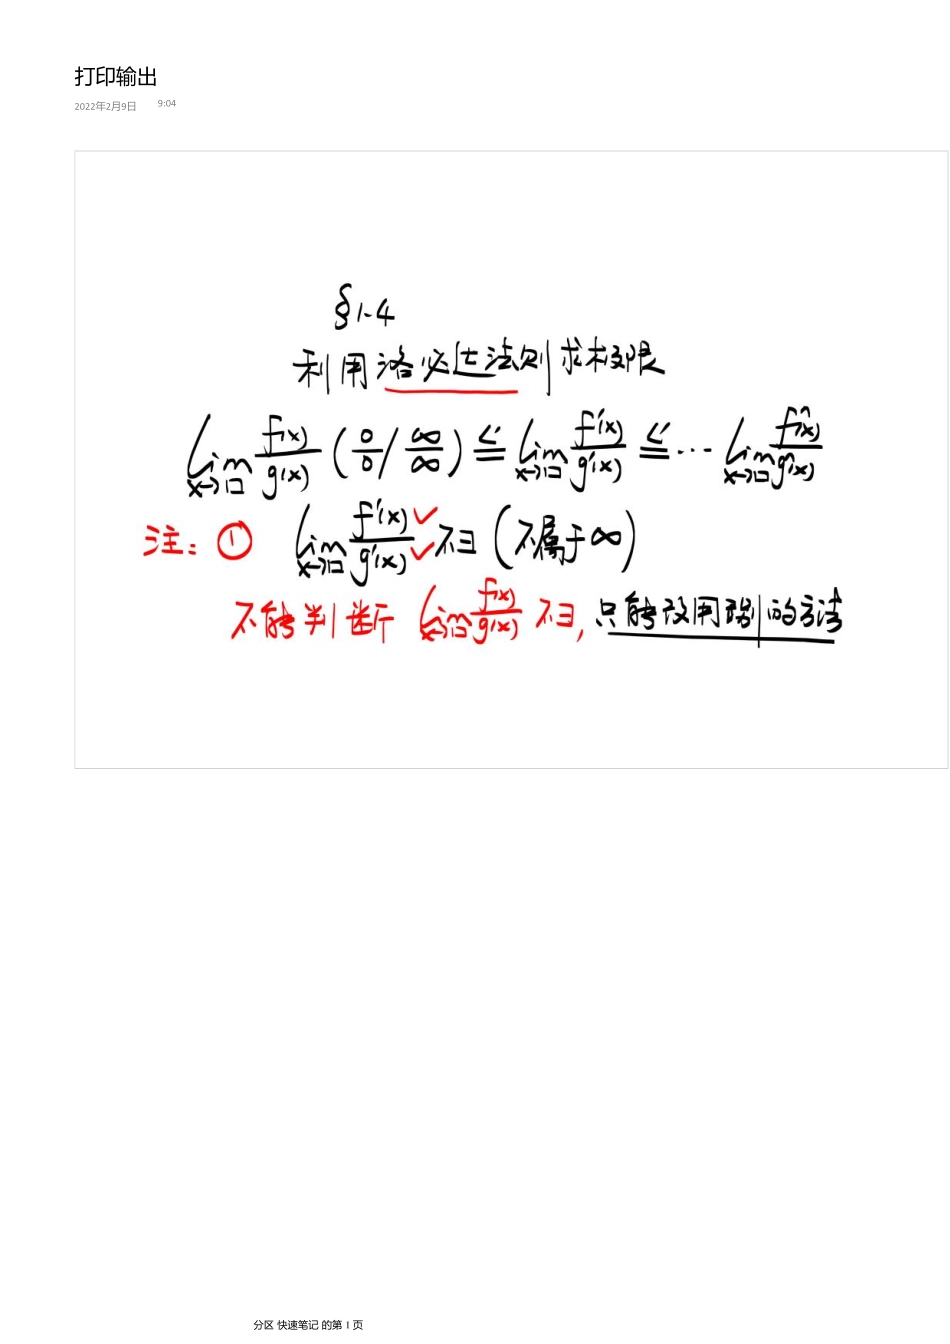 打印输出
2022年2月9日 9:04
§1-4
利用洛必达法则求极限
lim x→□ f(x)/g(x) (0/0 / ∞/∞) L'= lim x→□ f'(x)/g'(x) L'= ··· lim x→□ fⁿ(x)/gⁿ(x)
注: ① lim x→□ f'(x)/g'(x) ✓✓ 不∃ (不属于∞)
不能判断 lim x→□ f(x)/g(x) 不∃, 只能改用别的方法
分区 快速笔记 的第 1 页